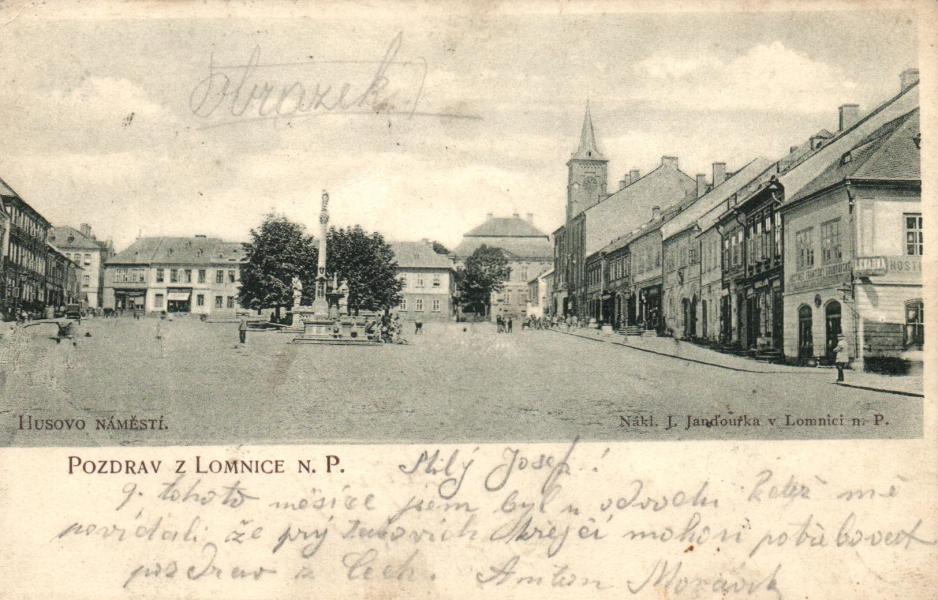 Obrazek
HOSTI
HUSOVO NÁMĚSTÍ.
Nákl. J. Janďourka v Lomnici n. P.
POZDRAV Z LOMNICE N. P.
Milý Josef!
9. tohoto měsíce jsem byl u odvodu když mě
povídali že prý takových krejčí mohou potřebovat
pozdrav z Čech. Anton Moravek